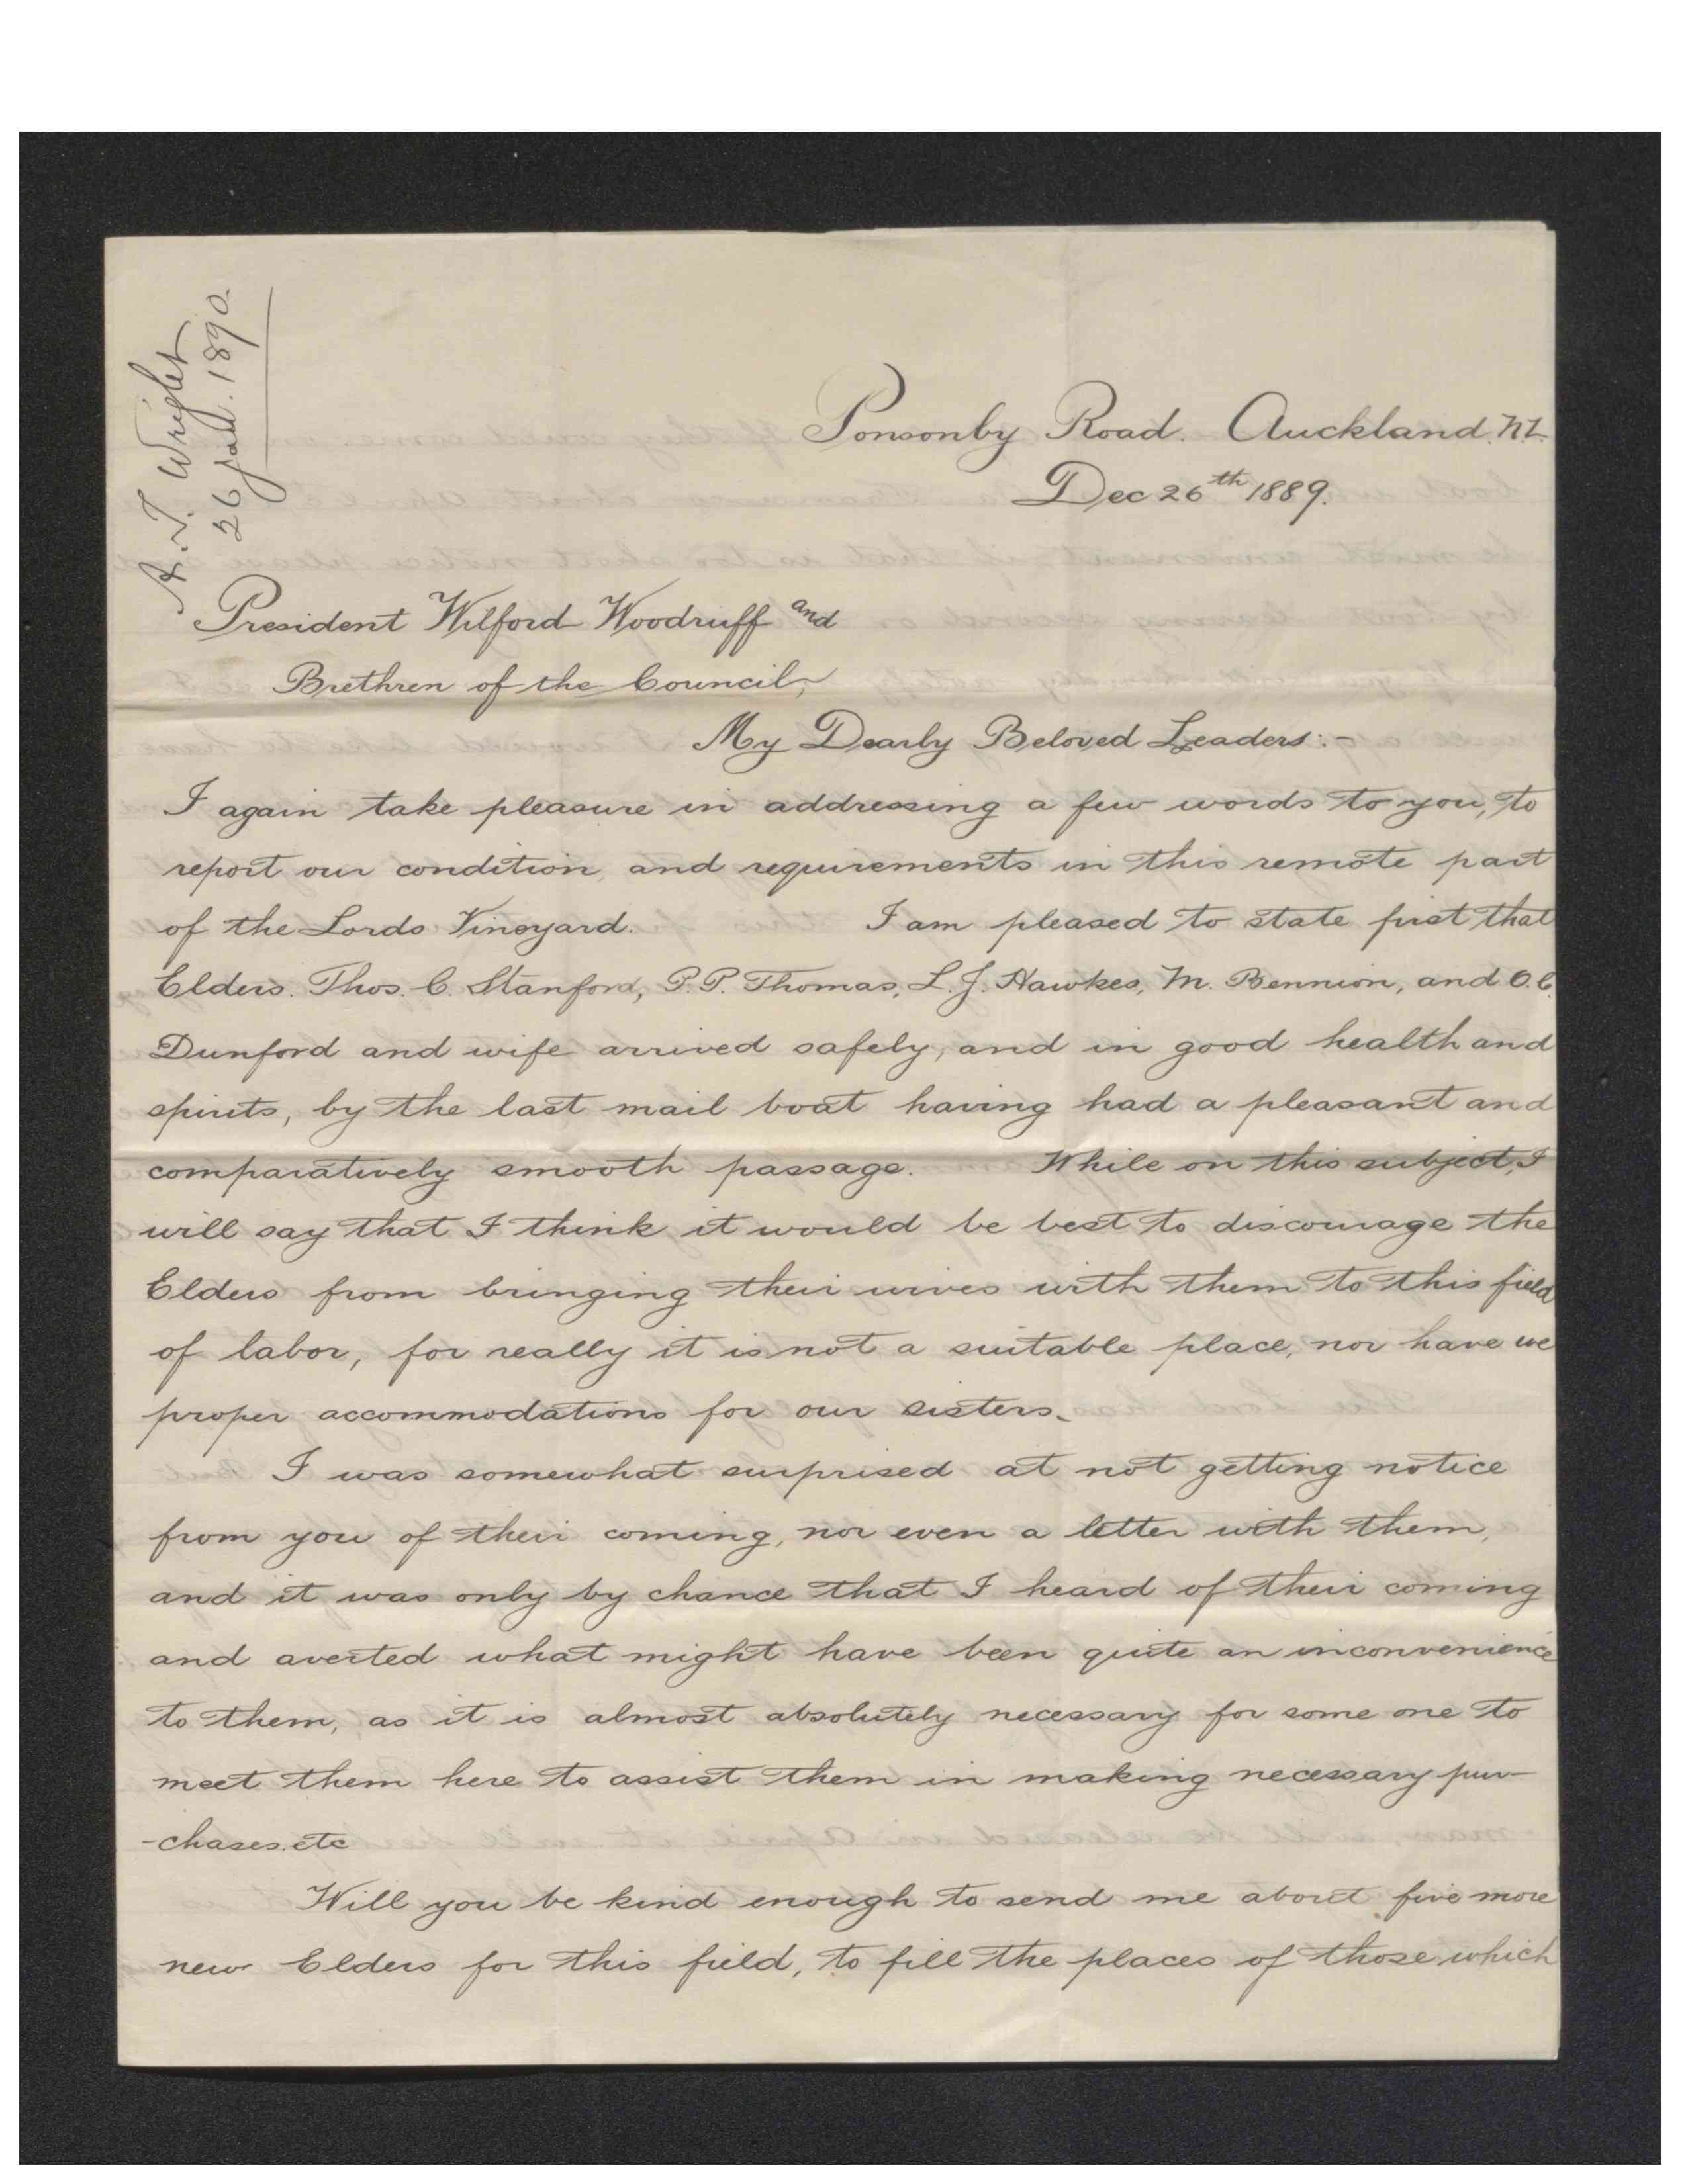 A. T. Wright
26 Jan. 1890.
Ponsonby Road. Auckland. N.Z.
Dec 26th 1889.
President Wilford Woodruff and
Brethren of the Council,
My Dearly Beloved Leaders:-
I again take pleasure in addressing a few words to you, to
report our condition, and requirements in this remote part
of the Lords Vineyard. I am pleased to state first that
Elders. Thos. C. Stanford, P. P. Thomas, L. J. Hawkes, M. Bennion, and O. C.
Dunford and wife arrived safely, and in good health and
spirits, by the last mail boat having had a pleasant and
comparatively smooth passage. While on this subject, I
will say that I think it would be best to discourage the
Elders from bringing their wives with them to this field
of labor, for really it is not a suitable place, nor have we
proper accommodations for our sisters.
I was somewhat surprised at not getting notice
from you of their coming, nor even a letter with them,
and it was only by chance that I heard of their coming
and averted what might have been quite an inconvenience
to them, as it is almost absolutely necessary for some one to
meet them here to assist them in making necessary pur-
-chases. etc
Will you be kind enough to send me about five more
new Elders for this field, to fill the places of those which